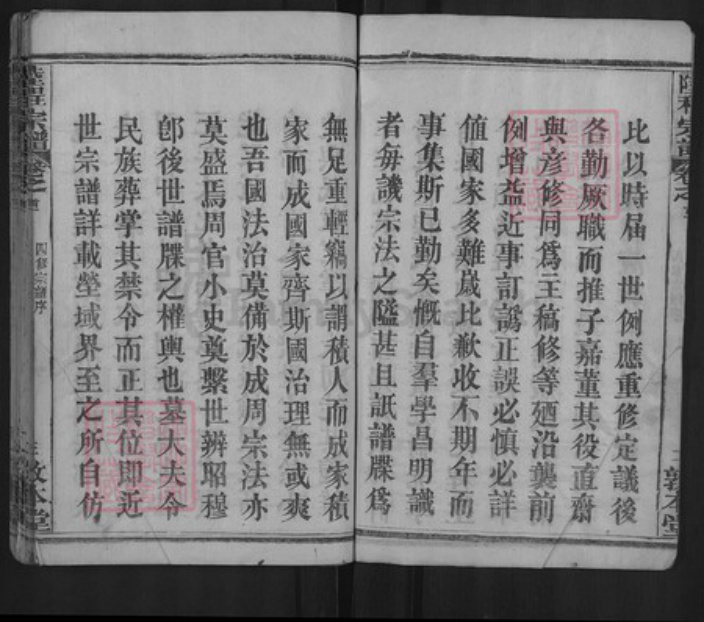 比以時屆一世例應重修定議後
各勤厥職而推子嘉董其役直齋
與彥修同爲主稿修等廼沿襲前
例增益近事訂譌正誤必慎必詳
值國家多難歲比歉收不期年而
事集斯已勤矣慨自羣學昌明識
者每譏宗法之隘甚且詆譜牒爲
敦本堂
無足重輕竊以謂積人而成家積
家而成國家齊斯國治理無或爽
也吾國法治莫備於成周宗法亦
莫盛焉周官小史奠繫世辨昭穆
卽後世譜牒之權輿也墓大夫令
民族葬掌其禁令而正其位即近
世宗譜詳載塋域界至之所自仿
宗譜
四修宗譜序
敦本堂